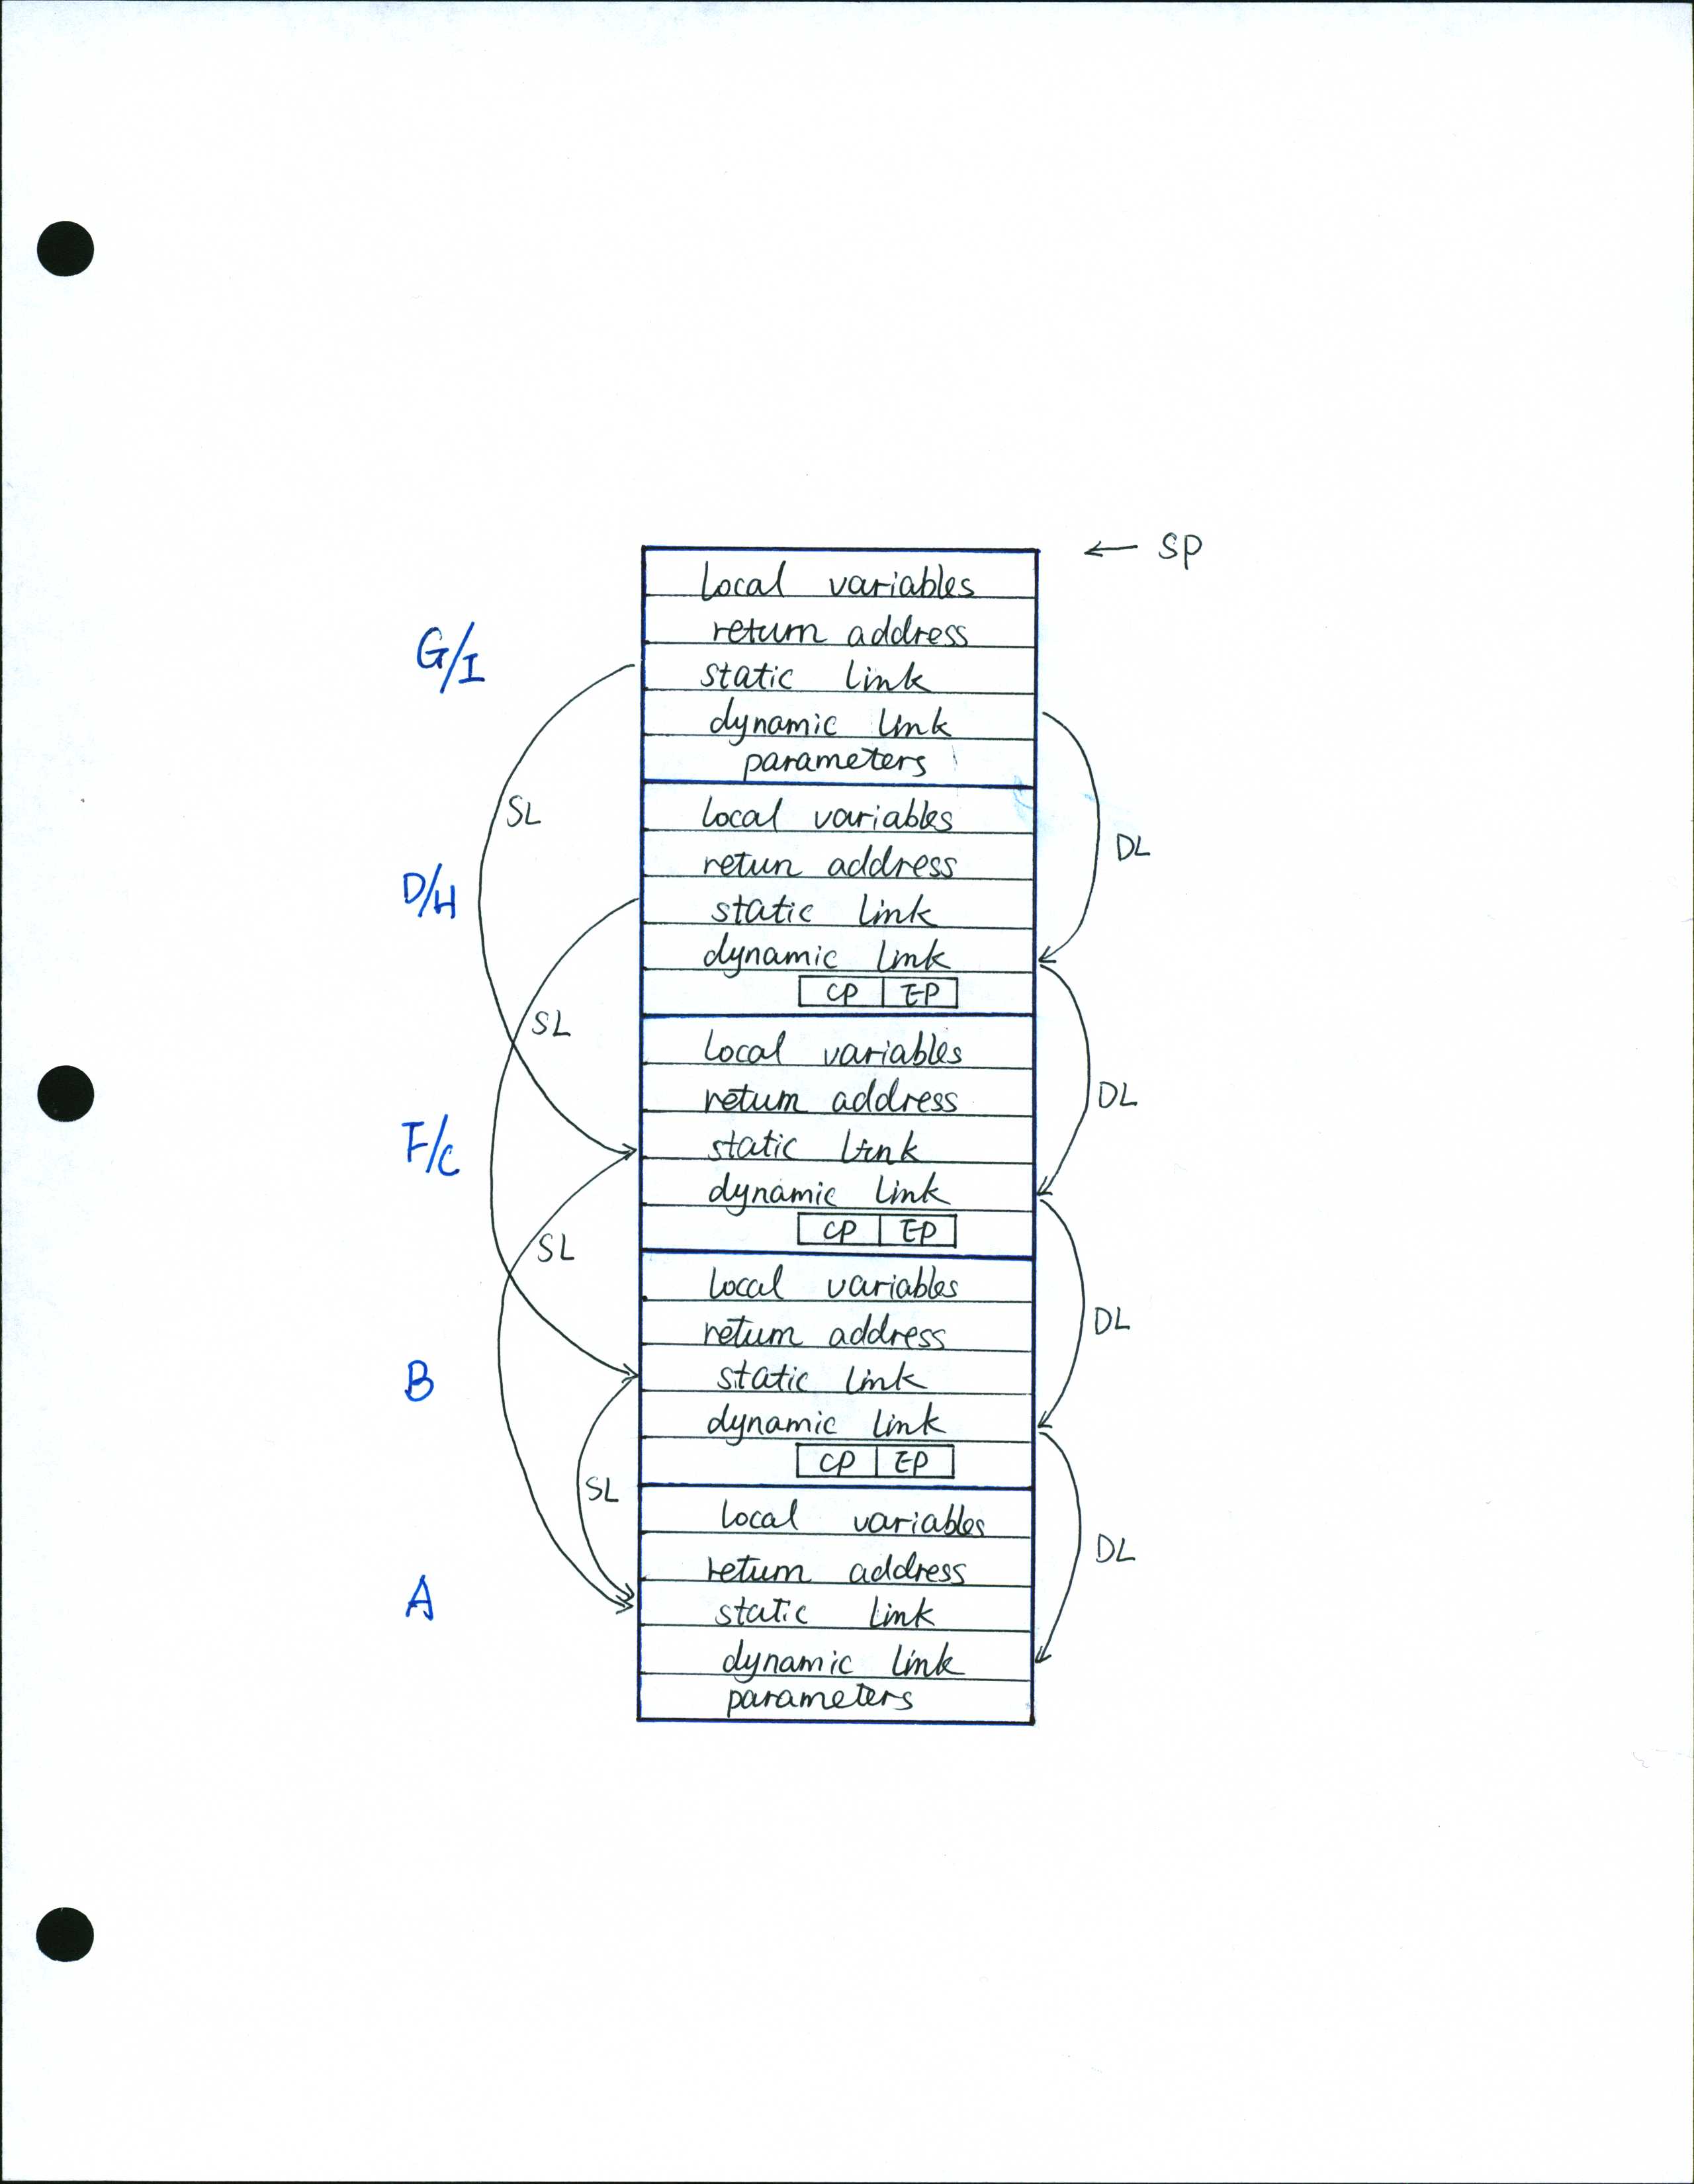 ← SP
local variables
return address
G/I
static link
dynamic link
parameters
SL
local variables
DL
retun address
D/H
static link
dynamic link
CP EP
SL
local variables
return address
DL
F/C
static link
dynamic link
CP EP
SL
local variables
return address
DL
B
static link
dynamic link
CP EP
SL
local variables
DL
return address
A
static link
dynamic link
parameters